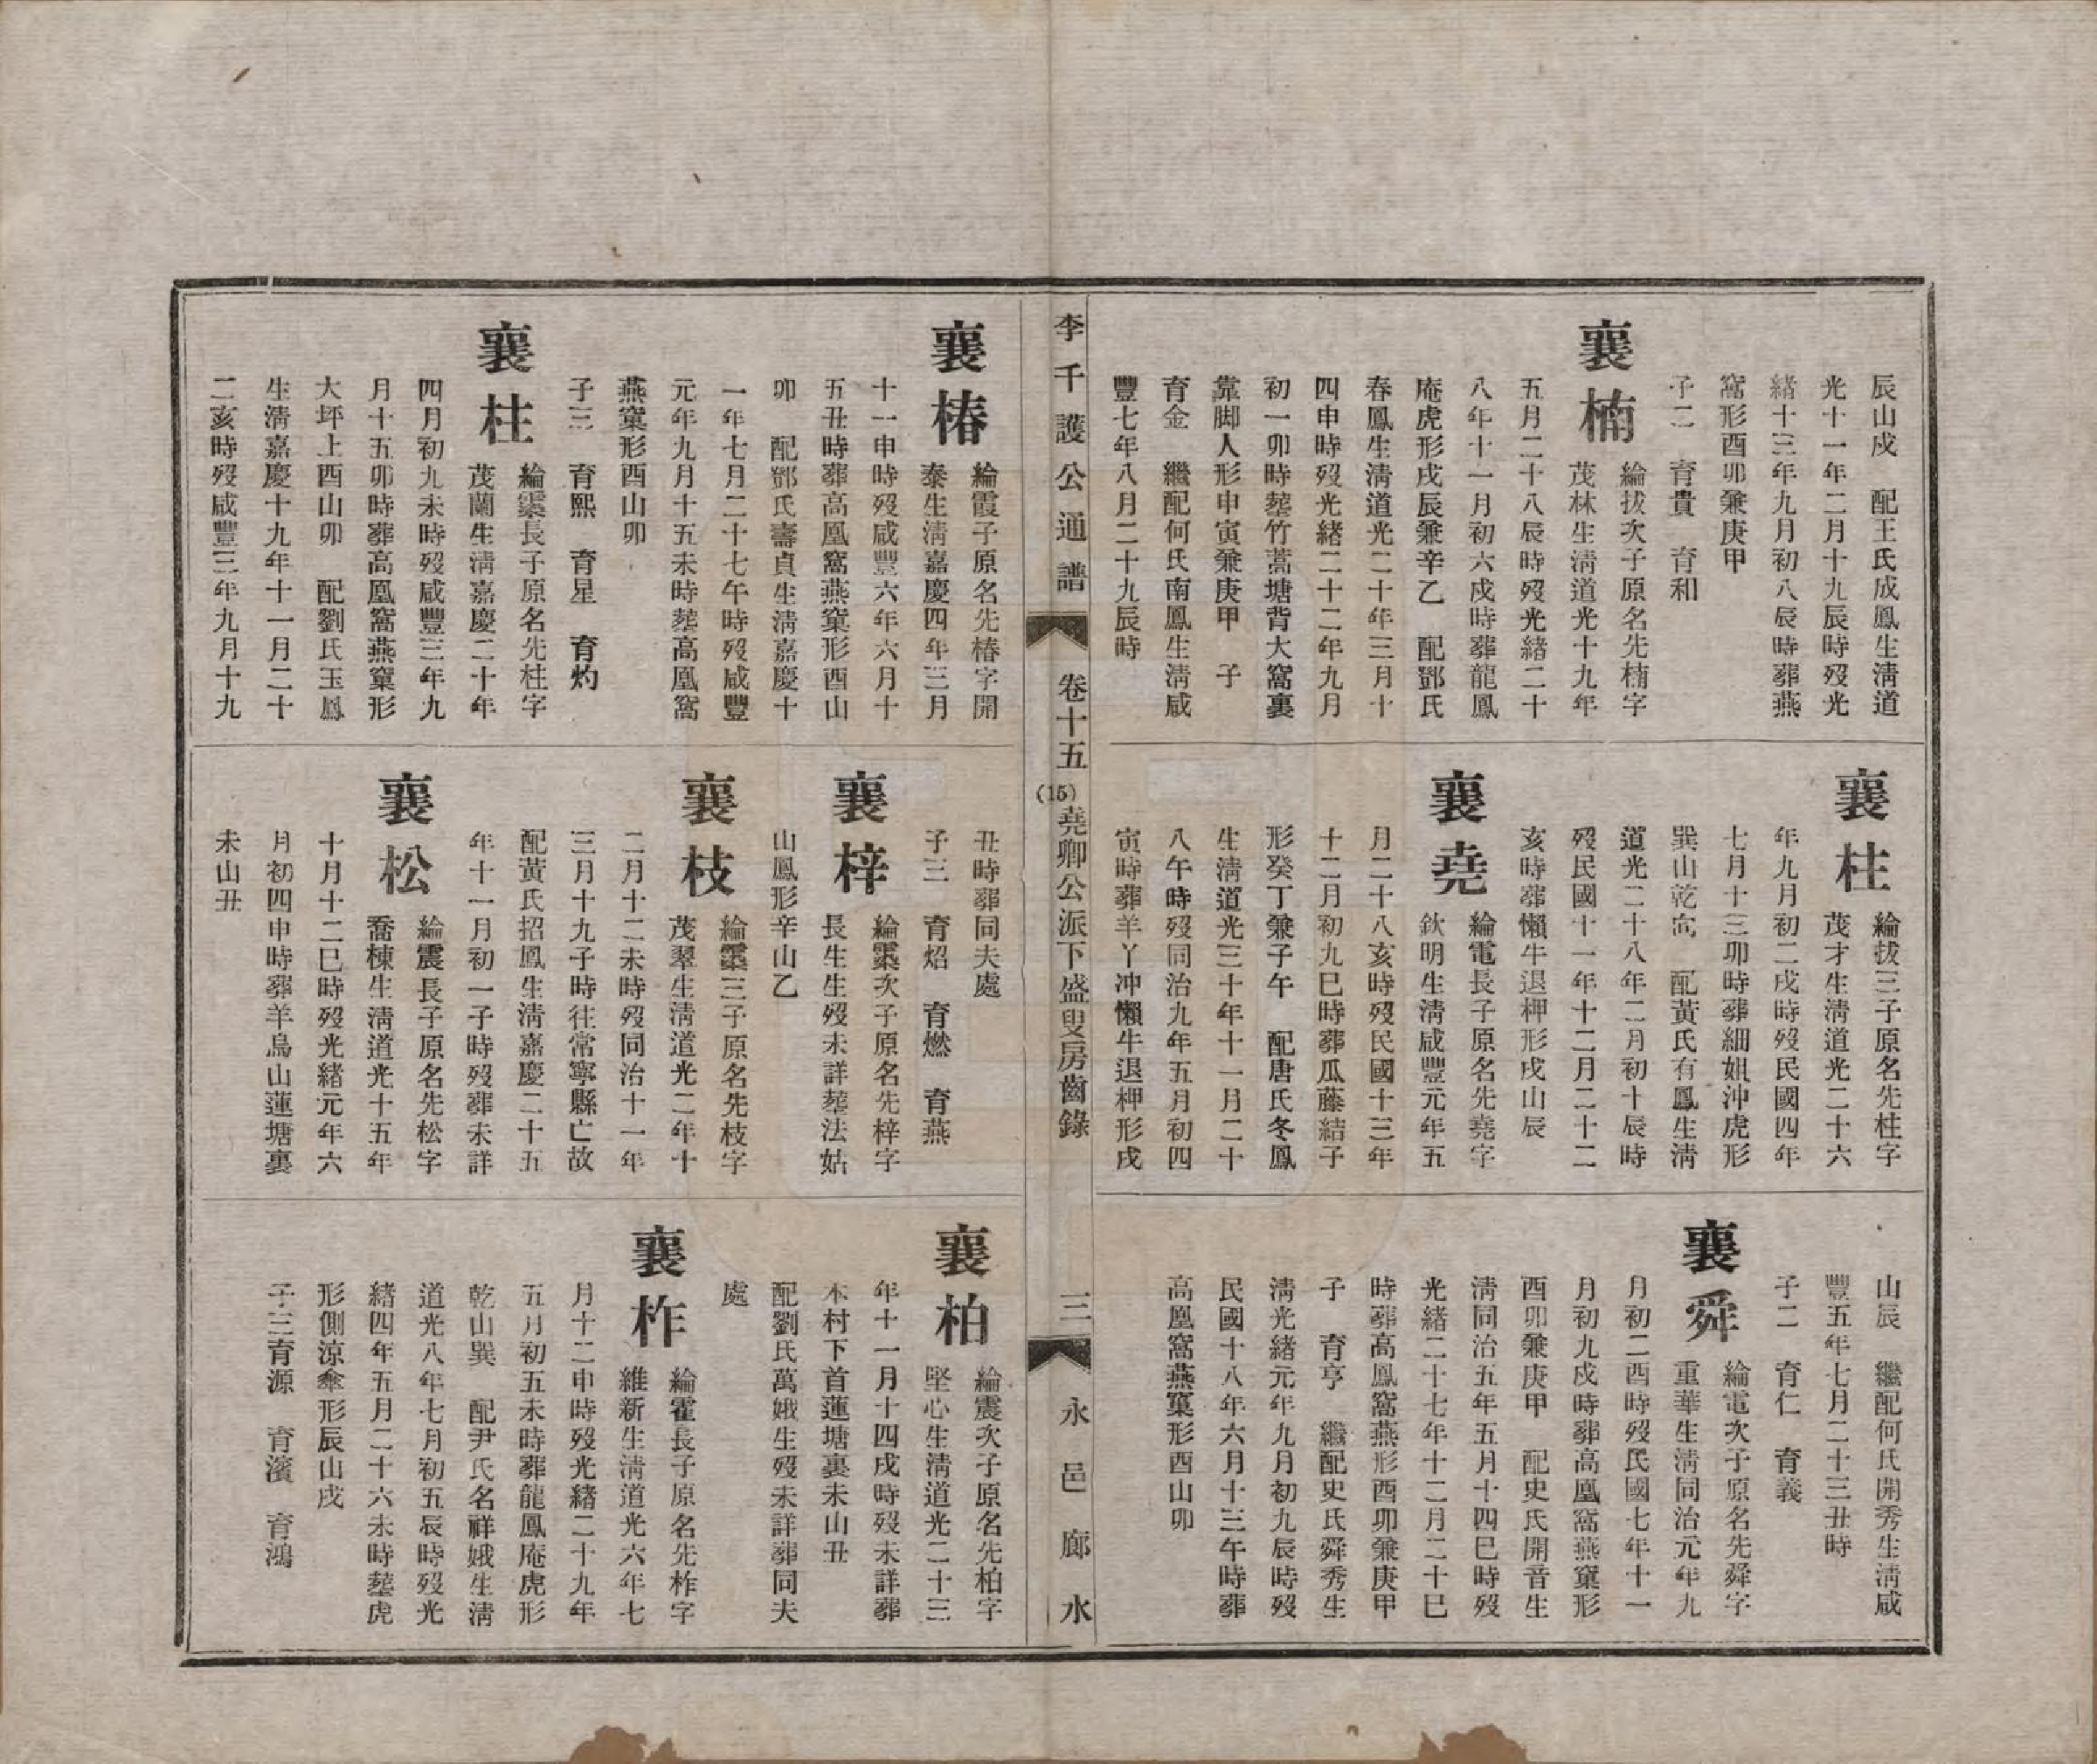 辰山戍　配王氏成鳳生淸道
光十一年二月十九辰時歿光
緒十三年九月初八辰時葬燕
窩形酉卯兼庚甲
子二　育貴　育和
襄楠　綸拔次子原名先楠字
茂林生淸道光十九年
五月二十八辰時歿光緒二十
八年十一月初六戌時葬龍鳳
庵虎形戌辰兼辛乙　配鄧氏
春鳳生淸道光二十年三月十
四申時歿光緒二十二年九月
初一卯時塟竹蒿塘背大窩裏
靠脚人形申寅兼庚甲　子
育金　繼配何氏南鳳生淸咸
豐七年八月二十九辰時
襄柱　綸拔三子原名先柱字
茂才生淸道光二十六
年九月初二戌時歿民國四年
七月十三卯時葬細姐沖虎形
巽山乾向　配黃氏有鳳生淸
道光二十八年二月初十辰時
歿民國十一年十二月二十二
亥時葬懶牛退柙形戌山辰
襄堯　綸電長子原名先堯字
欽明生淸咸豐元年五
月二十八亥時歿民國十三年
十二月初九巳時葬瓜藤結子
形癸丁兼子午　配唐氏冬鳳
生淸道光三十年十一月二十
八午時歿同治九年五月初四
寅時葬羊丫冲懶牛退柙形戌
山辰　繼配何氏開秀生淸咸
豐五年七月二十三丑時
子二　育仁　育義
襄舜　綸電次子原名先舜字
重華生淸同治元年九
月初二酉時歿民國七年十一
月初九戌時葬高凰窩燕窠形
酉卯兼庚甲　配史氏開音生
淸同治五年五月十四巳時歿
光緒二十七年十二月二十巳
時葬高鳳窩燕形酉卯兼庚甲
子　育亨　繼配史氏舜秀生
淸光緒元年九月初九辰時歿
民國十八年六月十三午時葬
高凰窩燕窠形酉山卯
李千護公通譜　卷十五　(15)堯卿公派下盛叟房齒錄　三　永邑廊水
襄椿　綸霞子原名先椿字開
泰生淸嘉慶四年三月
十一申時歿咸豐六年六月十
五丑時葬高凰窩燕窠形酉山
卯　配鄧氏壽貞生淸嘉慶十
一年七月二十七午時歿咸豐
元年九月十五未時塟高凰窩
燕窠形酉山卯
子三　育熙　育星　育灼
襄柱　綸霖長子原名先柱字
茂蘭生淸嘉慶二十年
四月初九未時歿咸豐三年九
月十五卯時葬高凰窩燕窠形
大坪上酉山卯　配劉氏玉鳳
生淸嘉慶十九年十一月二十
二亥時歿咸豐三年九月十九
丑時葬同夫處
子三　育炤　育燃　育燕
襄梓　綸霖次子原名先梓字
長生生歿未詳塟法姑
山鳳形辛山乙
襄枝　綸霖三子原名先枝字
茂翠生淸道光二年十
二月十二未時歿同治十一年
三月十九子時往常寧縣亡故
配黃氏招鳳生淸嘉慶二十五
年十一月初一子時歿葬未詳
襄松　綸震長子原名先松字
喬棟生淸道光十五年
十月十二巳時歿光緒元年六
月初四申時葬羊烏山蓮塘裏
未山丑
襄柏　綸震次子原名先柏字
堅心生淸道光二十三
年十一月十四戌時歿未詳葬
本村下首蓮塘裏未山丑
配劉氏萬娥生歿未詳葬同夫
處
襄柞　綸霍長子原名先柞字
維新生淸道光六年七
月十二申時歿光緒二十九年
五月初五未時葬龍鳳庵虎形
乾山巽　配尹氏名祥娥生淸
道光八年七月初五辰時歿光
緒四年五月二十六未時塟虎
形側涼傘形辰山戌
子三育源　育濱　育鴻